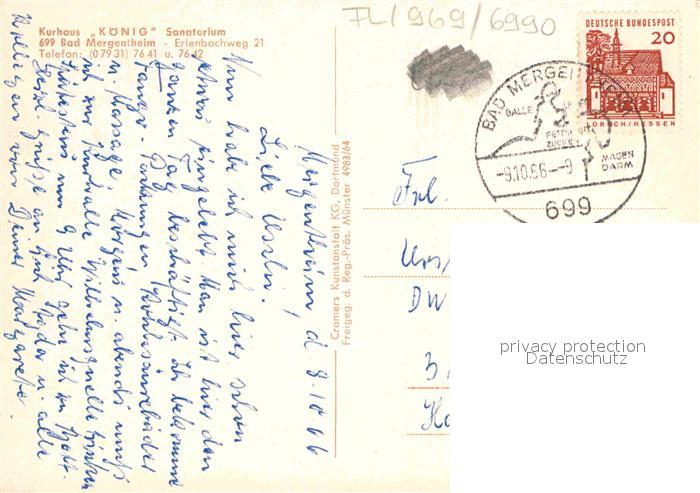 FL/969/6990
Kurhaus „KÖNIG" Sanatorium
699 Bad Mergentheim - Erlenbachweg 21
Telefon: (07931) 7641 u. 7642
DEUTSCHE BUNDESPOST
20
LORSCH/HESSEN
BAD MERGENTHEIM
GALLE
ZUCKER
MAGEN
DARM
-9.10.66--9
699
Mergentheim, d. 8.10.66
Liebe Ursula!
Nun habe ich mich hier schon
etwas eingelebt. Man ist hier den
ganzen Tag beschäftigt. Ich bekomme
Packungen Kohlensäurebäder
u. Massage, Morgens u. abends muß
ich zur Wilhelmsquelle trinken
um 9 Uhr ich im Bett.
Herzl. Grüße an Dich u. alle
von Deiner Margarete.
Cramers Kunstanstalt KG, Dortmund
Freigeg. d. Reg.-Präs. Münster 4983/64
Frl.
Urs
DW
3
privacy protection
Datenschutz